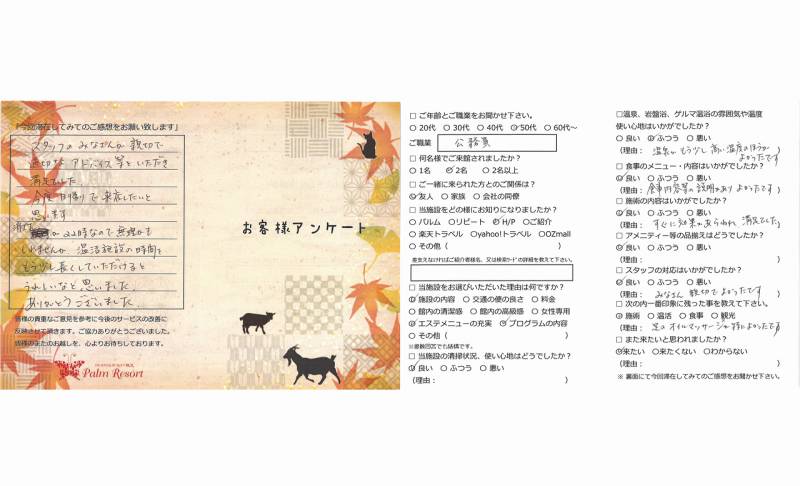 「今回滞在してみてのご感想をお願い致します」
スタッフの みなさんが 親切で
適切な アドバイス等をいただき
満足でした
今度 日帰りで 来店したいと
思います
が 22時なので 無理かも
しれませんが 温活施設の時間を
もう少し長くしていただけると
うれしいなと 思いました
ありがとうございました
皆様の貴重なご意見を参考に今後のサービスの改善に
反映させて頂きます。ご協力ありがとうございました。
皆様のまたのお越しを、心よりお待ちしております。
Palm Resort
お客様アンケート
□ ご年齢とご職業をお聞かせ下さい。
○ 20代 ○ 30代 ○ 40代 ○ 50代 ○ 60代～
ご職業 公務員
□ 何名様でご来館されましたか？
○ 1名 ○ 2名 ○ 2名以上
□ ご一緒に来られた方とのご関係は？
○ 友人 ○ 家族 ○ 会社の同僚
□ 当施設をどの様にお知りになりましたか？
○ パルム ○ リピート ○ H/P ○ ご紹介
○ 楽天トラベル ○ yahoo!トラベル ○ OZmall
○ その他（ ）
差支えなければご紹介者様名、又は検索ワードの詳細を教えて下さい。
□ 当施設をお選びいただいた理由は何ですか？
○ 施設の内容 ○ 交通の便の良さ ○ 料金
○ 館内の清潔感 ○ 館内の高級感 ○ 女性専用
○ エステメニューの充実 ○ プログラムの内容
○ その他（ ）
※複数回答でも結構です。
□ 当施設の清掃状況、使い心地はどうでしたか？
○ 良い ○ ふつう ○ 悪い
（理由： ）
□温泉、岩盤浴、ゲルマ温浴の雰囲気や温度
使い心地はいかがでしたか？
○ 良い ○ ふつう ○ 悪い
（理由： 温泉が もう少し 高い温度のほうが よかったです ）
□ 食事のメニュー・内容はいかがでしたか？
○ 良い ○ ふつう ○ 悪い
（理由： 食事内容等の説明があり よかったです ）
□ 施術の内容はいかがでしたか？
○ 良い ○ ふつう ○ 悪い
（理由： すぐに 効果があらわれ 満足でした ）
□ アメニティー等の品揃えはどうでしたか？
○ 良い ○ ふつう ○ 悪い
（理由： ）
□ スタッフの対応はいかがでしたか？
○ 良い ○ ふつう ○ 悪い
（理由： みなさん 親切で よかったです ）
□ 次の内一番印象に残った事を教えて下さい。
○ 施術 ○ 温活 ○ 食事 ○ 観光
（理由： 足の オイルマッサージが 特によかったです ）
□ また来たいと思われましたか？
○ 来たい ○ 来たくない ○ わからない
（理由： ）
※ 裏面にて今回滞在してみてのご感想をお聞かせ下さい。